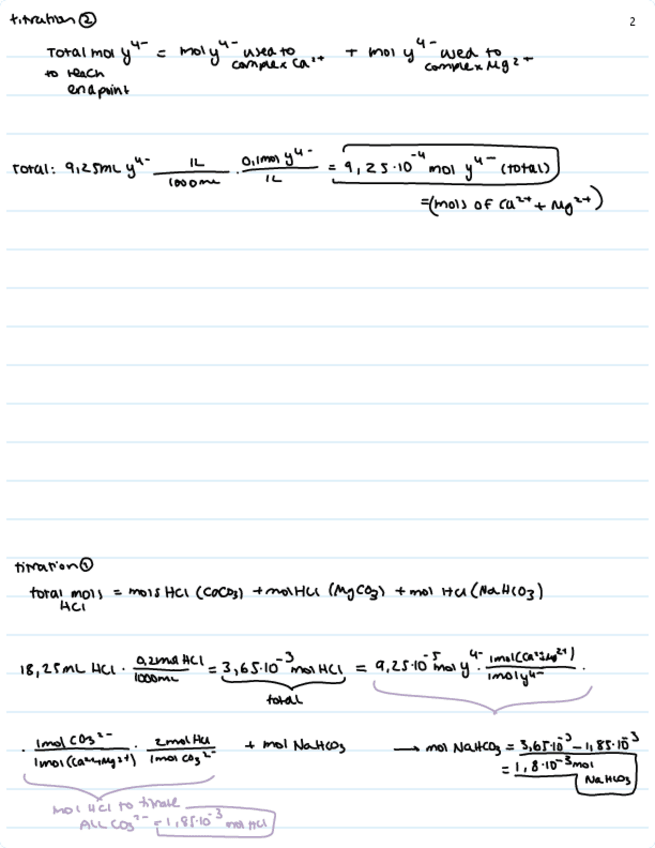 titration ②
2
Total mol y⁴⁻ = mol y⁴⁻ used to + mol y⁴⁻ used to
to reach complex Ca²⁺ complex Mg²⁺
endpoint
Total: 9,25mL y⁴⁻ 1L/1000mL · 0,1mol y⁴⁻/1L = 9,25·10⁻⁴ mol y⁴⁻ (total)
=(mols of Ca²⁺ + Mg²⁺)
titration ①
total mols = mols HCl (CaCO₃) + mol HCl (MgCO₃) + mol HCl (NaHCO₃)
HCl
18,25mL HCl · 0,2mol HCl/1000mL = 3,65·10⁻³ mol HCl = 9,25·10⁻⁵ mol y⁴⁻ · 1mol(Ca²⁺+Mg²⁺)/1mol y⁴⁻ ·
total
· 1mol CO₃²⁻/1mol(Ca²⁺+Mg²⁺) · 2mol HCl/1mol CO₃²⁻ + mol NaHCO₃ → mol NaHCO₃ = 3,65·10⁻³ - 1,85·10⁻³
= 1,8·10⁻³ mol
NaHCO₃
mol HCl to titrate
ALL CO₃²⁻ = 1,85·10⁻³ mol HCl